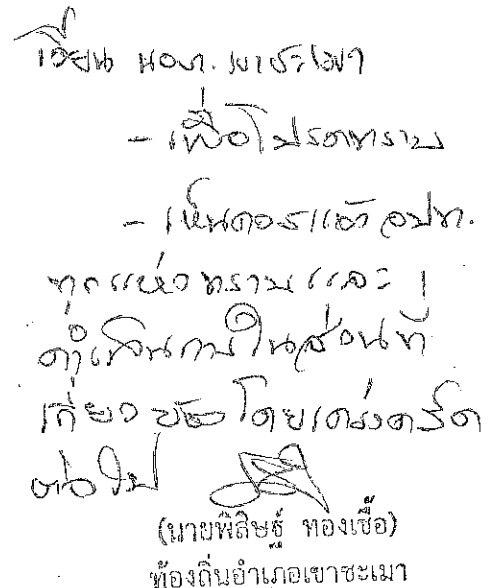 เรียน นอภ. เขาชะเมา
- เพื่อโปรดทราบ
- เห็นควรแจ้ง อปท.
ทุกแห่งทราบและ
ดำเนินการในส่วนที่
เกี่ยวข้องโดยเคร่งครัด
ต่อไป
(นายพิสิษฐ์ ทองเชื้อ)
ท้องถิ่นอำเภอเขาชะเมา